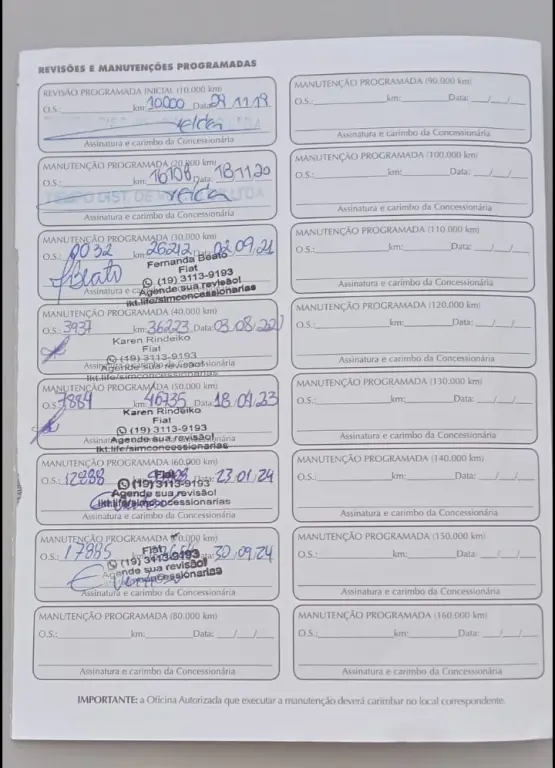 REVISÕES E MANUTENÇÕES PROGRAMADAS
REVISÃO PROGRAMADA INICIAL (10.000 km)
O.S.: km: 10000 Data: 11.19
Assinatura e carimbo da Concessionária
MANUTENÇÃO PROGRAMADA (20.000 km)
O.S.: km: 16108 Data: 18 11 20
Assinatura e carimbo da Concessionária
MANUTENÇÃO PROGRAMADA (30.000 km)
O.S.: 9032 km: 26212 Data: 02.09.21
Beato
Fernanda Beato
Fiat
(19) 3113-9193
Agende sua revisão!
lkt.life/simconcessionarias
MANUTENÇÃO PROGRAMADA (40.000 km)
O.S.: 3937 km: 36223 Data: 03.08.22
Karen Rindeiko
Fiat
(19) 3113-9193
Agende sua revisão!
lkt.life/simconcessionarias
MANUTENÇÃO PROGRAMADA (50.000 km)
O.S.: 7884 km: 46735 Data: 18.04.23
Karen Rindeiko
Fiat
(19) 3113-9193
Agende sua revisão!
lkt.life/simconcessionarias
MANUTENÇÃO PROGRAMADA (60.000 km)
O.S.: 12888 Data: 23.01.24
Fiat
(19) 3113-9193
Agende sua revisão!
lkt.life/simconcessionarias
Assinatura e carimbo da Concessionária
MANUTENÇÃO PROGRAMADA (70.000 km)
O.S.: 17885 Data: 30.09.24
Fiat
(19) 3113-9193
Agende sua revisão!
Assinatura e carimbo da Concessionária
MANUTENÇÃO PROGRAMADA (80.000 km)
O.S.: km: Data: / /
Assinatura e carimbo da Concessionária
MANUTENÇÃO PROGRAMADA (90.000 km)
O.S.: km: Data: / /
Assinatura e carimbo da Concessionária
MANUTENÇÃO PROGRAMADA (100.000 km)
O.S.: km: Data: / /
Assinatura e carimbo da Concessionária
MANUTENÇÃO PROGRAMADA (110.000 km)
O.S.: km: Data: / /
Assinatura e carimbo da Concessionária
MANUTENÇÃO PROGRAMADA (120.000 km)
O.S.: km: Data: / /
Assinatura e carimbo da Concessionária
MANUTENÇÃO PROGRAMADA (130.000 km)
O.S.: km: Data: / /
Assinatura e carimbo da Concessionária
MANUTENÇÃO PROGRAMADA (140.000 km)
O.S.: km: Data: / /
Assinatura e carimbo da Concessionária
MANUTENÇÃO PROGRAMADA (150.000 km)
O.S.: km: Data: / /
Assinatura e carimbo da Concessionária
MANUTENÇÃO PROGRAMADA (160.000 km)
O.S.: km: Data: / /
Assinatura e carimbo da Concessionária
IMPORTANTE: a Oficina Autorizada que executar a manutenção deverá carimbar no local correspondente.